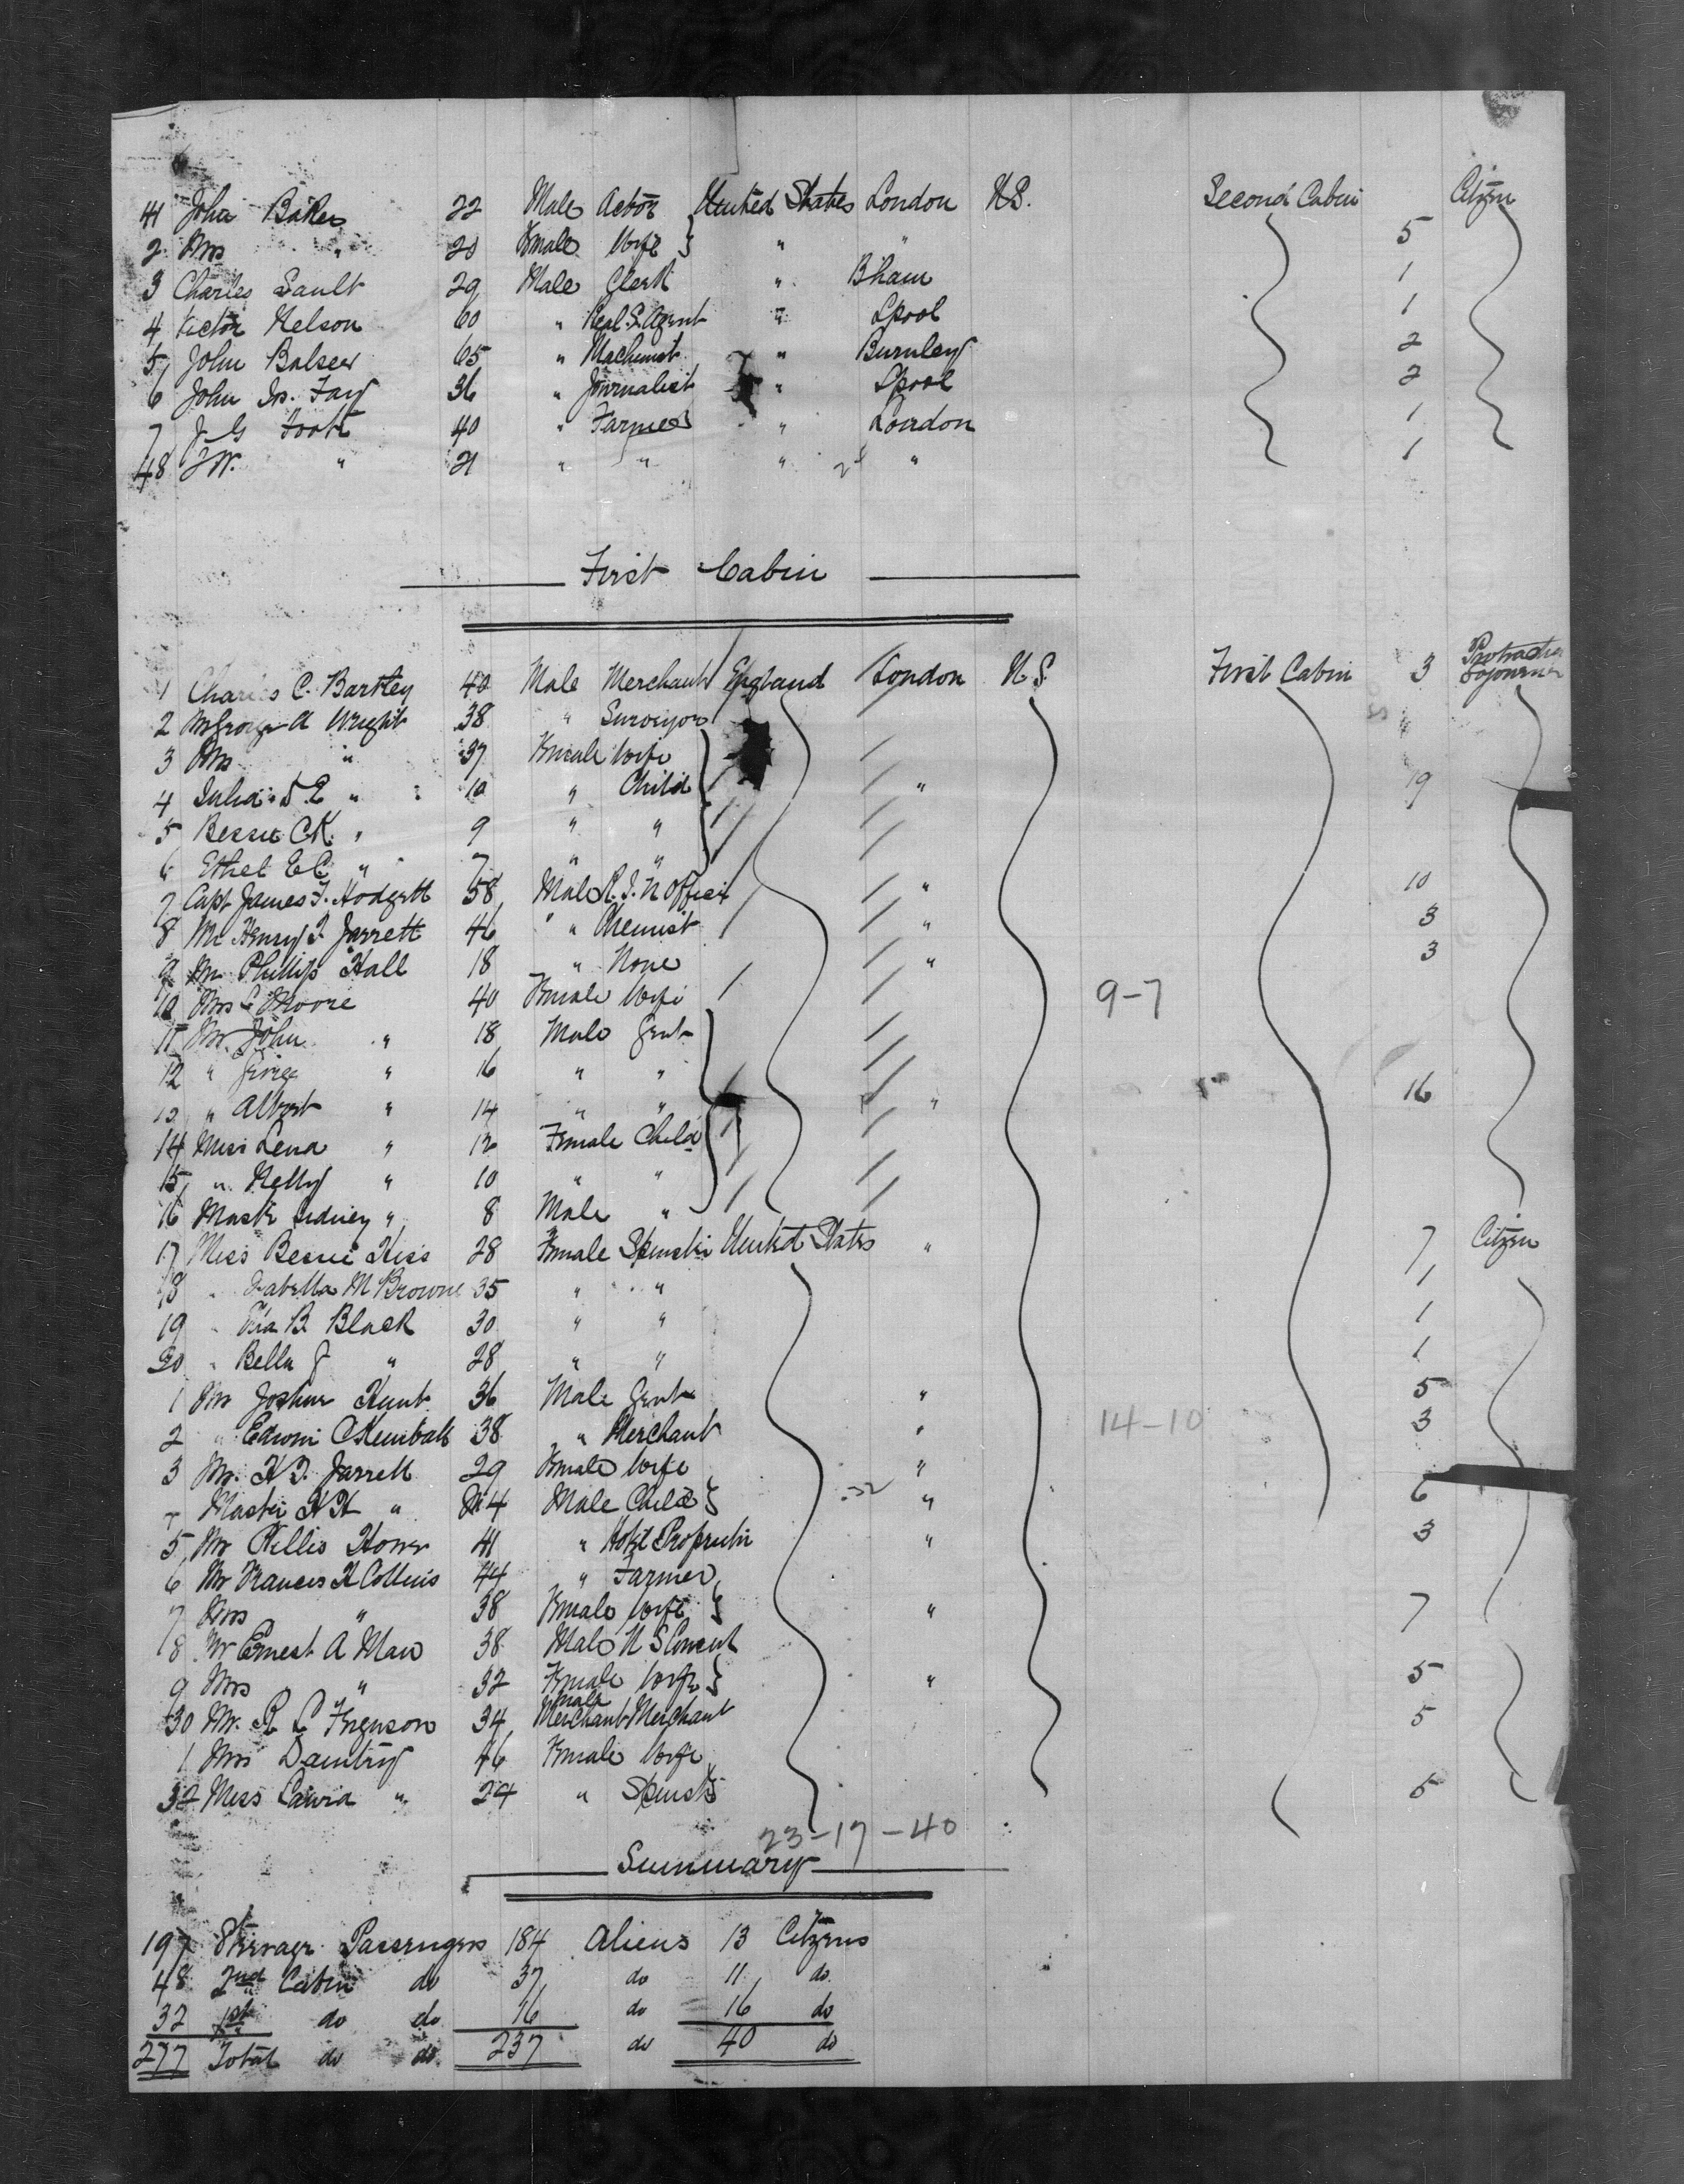 41 John Baker 22 Male Actor United States London U.S. Second Cabin 5 Citizen
2 Mrs " 20 Female Wife " "
3 Charles Sault 29 Male Clerk " B'ham 1
4 Victor Nelson 60 " Real S. Agent " Lpool 1
5 John Balseer 65 " Machinist " Burnley 2
6 John Js. Fay 36 " Journalist " Lpool 2
7 J G Foote 40 " Farmer " London 1
48 J W. " 21 " " " " 1
First Cabin
1 Charles C. Bartley 40 Male Merchant England London U S. First Cabin 3 Protracted Sojourner
2 Mr George A Wright 38 " Surveyor "
3 Mrs " 37 Female Wife
4 Julia S E " 10 " Child " 19
5 Bessie C K. " 9 " "
6 Ethel E C " 7 " "
7 Capt James F. Hodgett 58 Male R. I. N Officer " 10
8 Mr Henry J. Jarrett 46 " Chemist " 3
9 Mr Phillip Hall 18 " None " 3
10 Mrs Moore 40 Female Wife 9-7
11 Mr John " 18 Male Gent
12 " George " 16 " "
13 " Albert " 14 " " " 16
14 Miss Lena " 12 Female Child
15 " Nelly " 10 " "
16 Mastr Sidney " 8 Male "
17 Miss Bessie Hiss 28 Female Spinster United States " 7 Citizen
18 " Isabella M Browne 35 " " 1
19 " B Black 30 " " 1
20 " Bella J " 28 " " 1
1 Mr Joshua Hunt 36 Male Gent " 5
2 " Edwin C Kemball 38 " Merchant " 14-10 3
3 Mrs. H J. Jarrett 29 Female Wife "
Master H H " 4 Male Child " 6
5 Mr Willis Howe 41 " Hotel Proprietor " 3
6 Mr Frances H Collins 44 " Farmer
7 Mrs " 38 Female Wife " 7
8 Mr Ernest A Man 38 Male U S Consul
9 Mrs " 32 Female Wife " 5
30 Mr. R L Ferguson 34 Male Merchant Merchant 5
1 Mrs Daintry 46 Female Wife
32 Miss Laura " 24 " Spinster 5
23-17-40
Summary
197 Steerage Passengers 184 Aliens 13 Citizens
48 2nd Cabin do 37 do 11 do
32 1st do do 16 do 16 do
277 Total do do 237 do 40 do